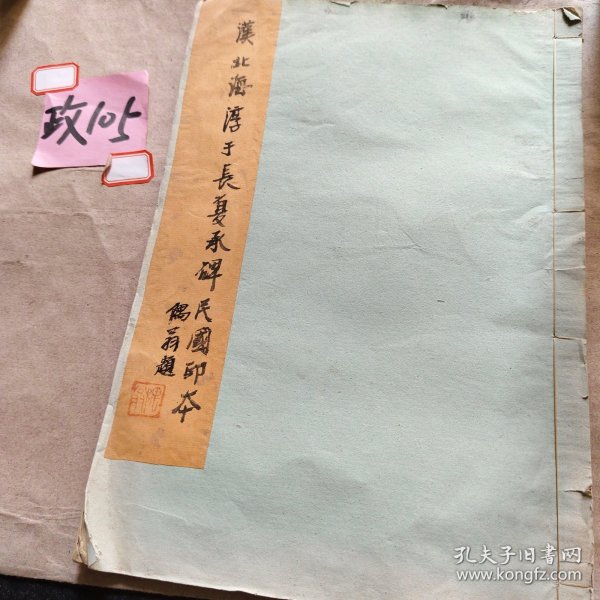 政105
漢北海淳于長夏承碑
民國印本
隅翁題
孔夫子旧书网
www.kongfz.com